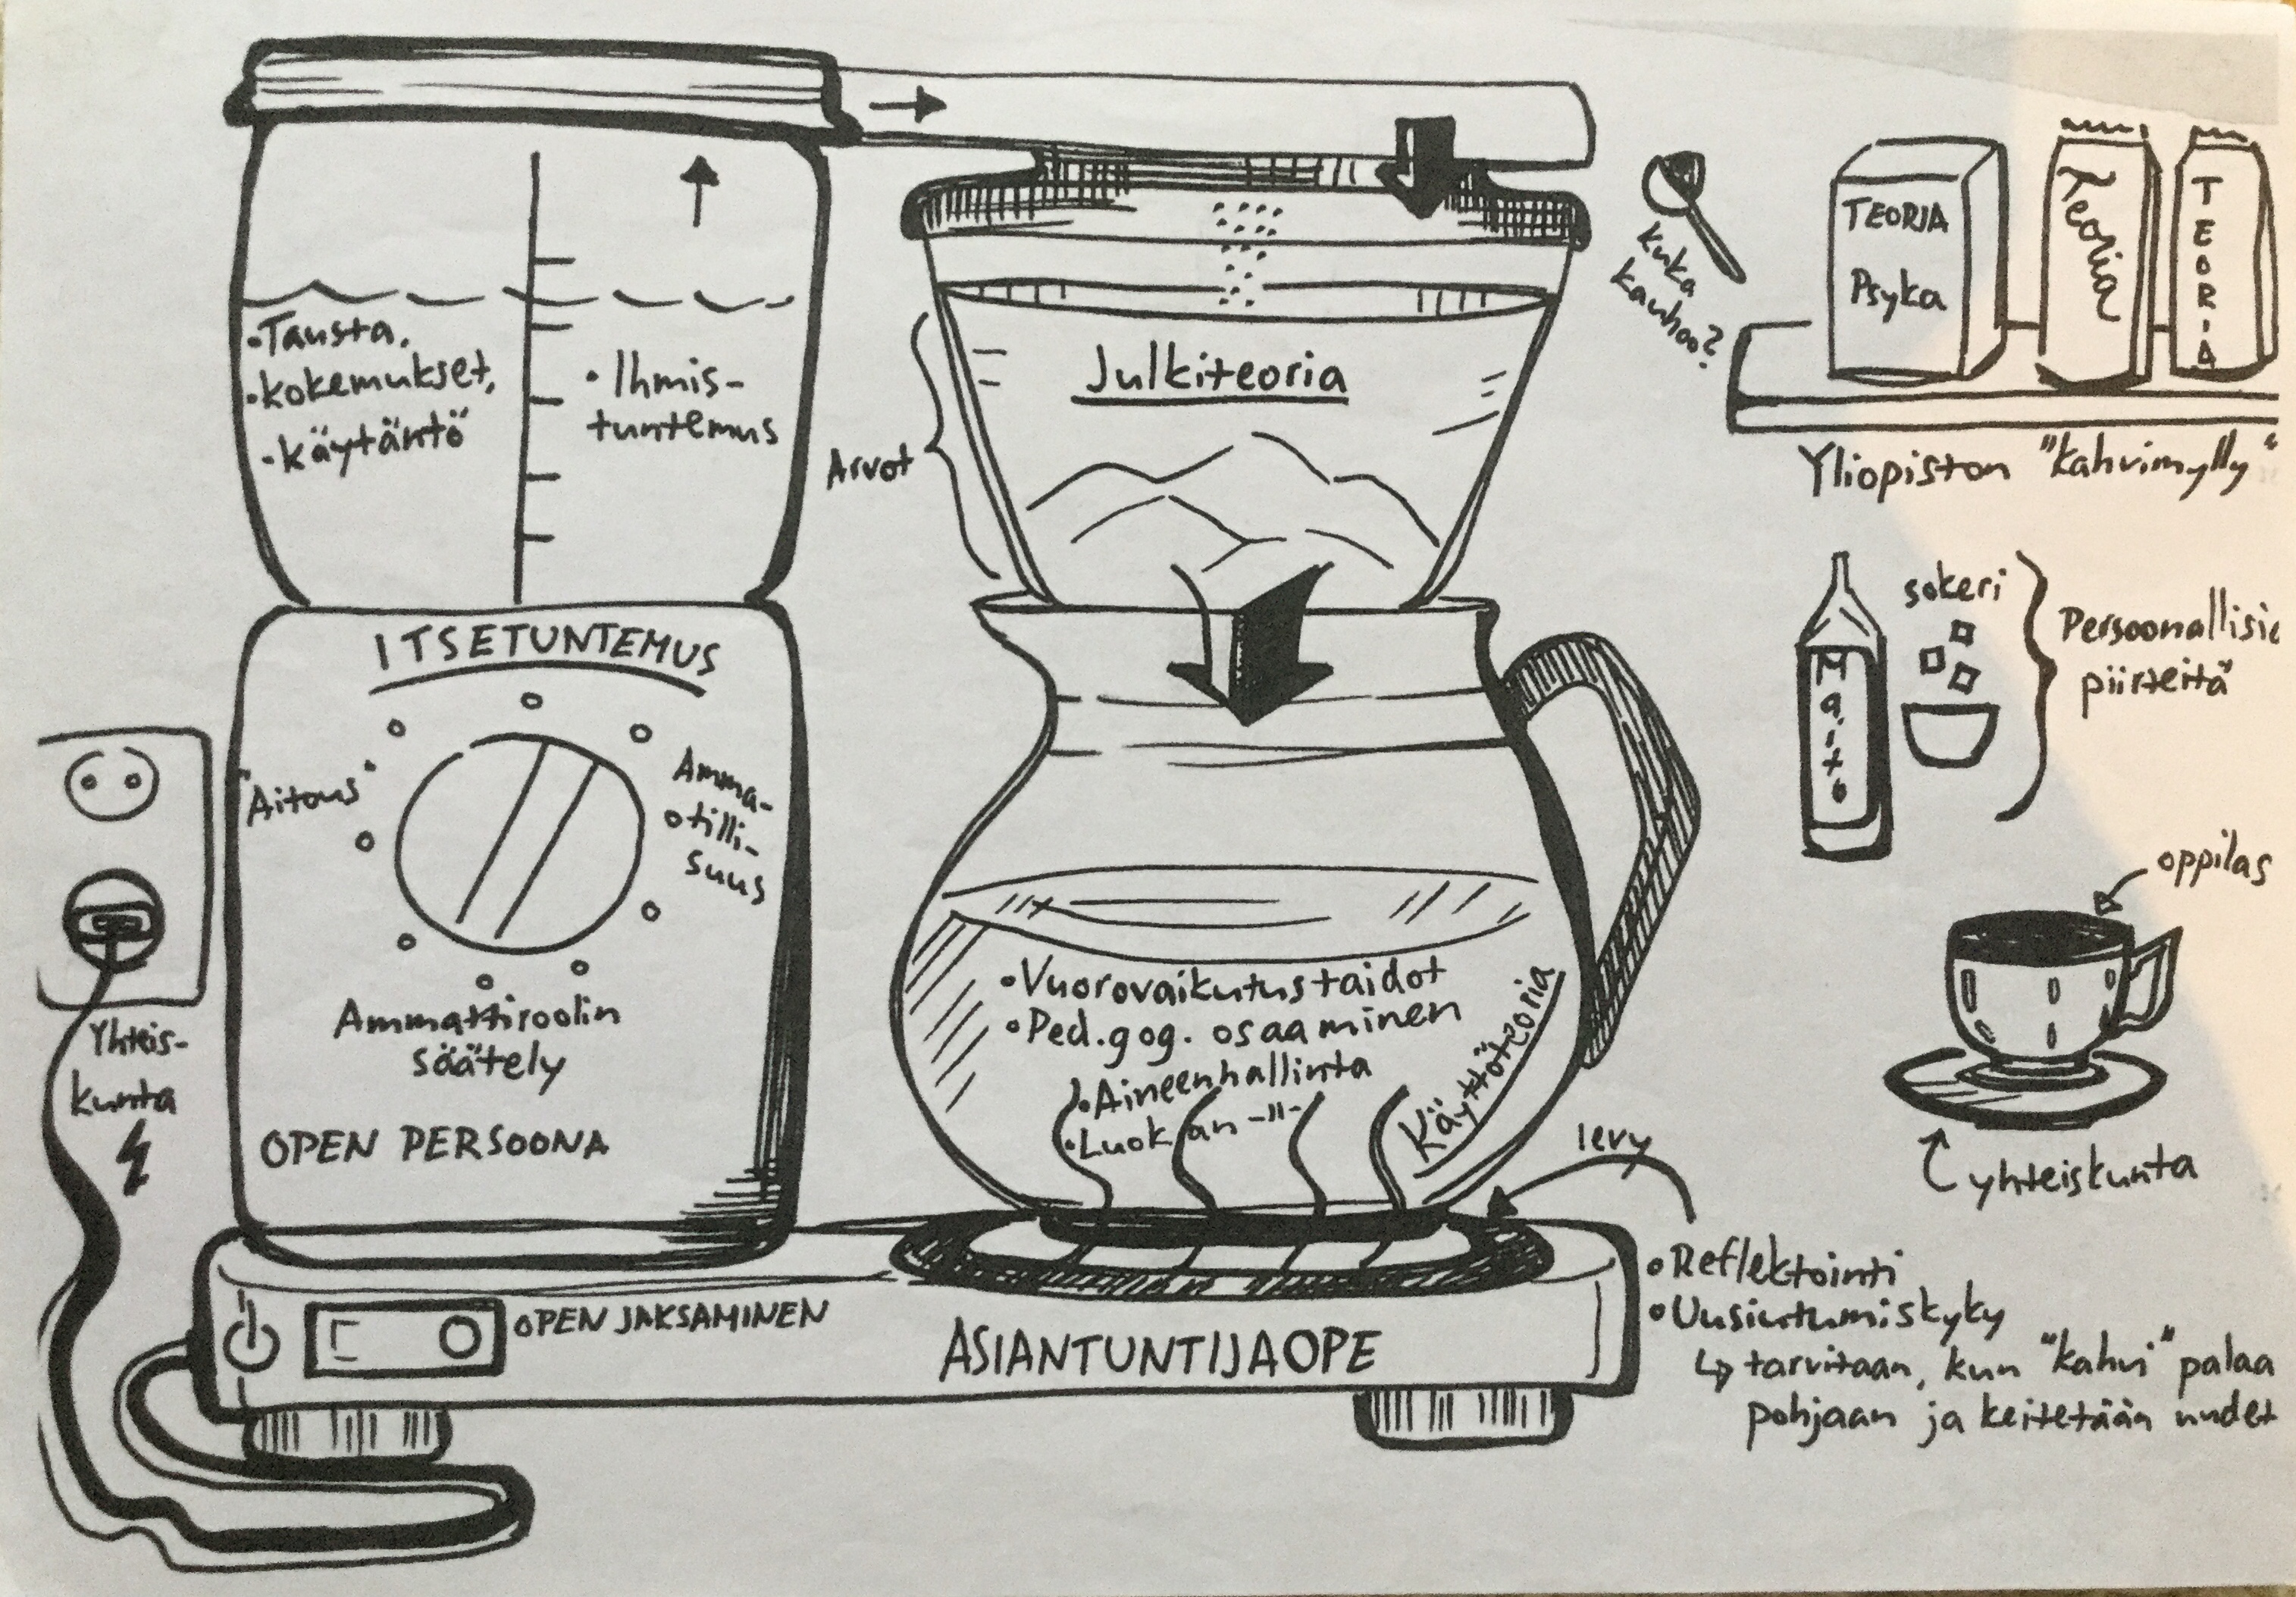 •Tausta,
•kokemukset,
•käytäntö
•Ihmis-
tuntemus
Arvot
Julkiteoria
Kuka
kauhoo?
TEORIA
Psyka
Teoria
TEORIA
Yliopiston "kahvimylly"
Maito
sokeri
Persoonallisia
piirteitä
oppilas
yhteiskunta
ITSETUNTEMUS
"Aitous"
Amma-
otilli-
suus
Ammattiroolin
säätely
OPEN PERSOONA
Yhteis-
kunta
•Vuorovaikutustaidot
•Ped.gog. osaaminen
•Aineenhallinta
•Luokan -"-
Käyttöteoria
levy
•Reflektointi
•Uusiutumiskyky
↳ tarvitaan, kun "kahvi" palaa
pohjaan ja keitetään uudet
OPEN JAKSAMINEN
ASIANTUNTIJAOPE